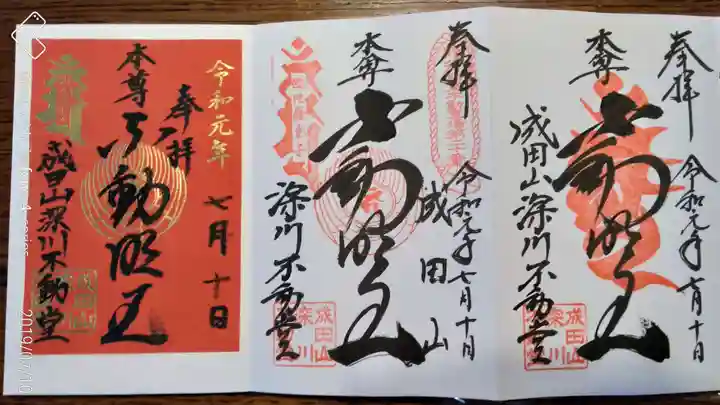 令和元年
奉拝
七月十日
本尊
不動明王
成田山深川不動堂
成田山
奉拝
令和元年七月十日
成田山
本尊
不動明王
深川不動堂
成田山
深川
奉拝
令和元年七月十日
本尊
不動明王
成田山深川不動堂
成田山
深川
2019/07/10